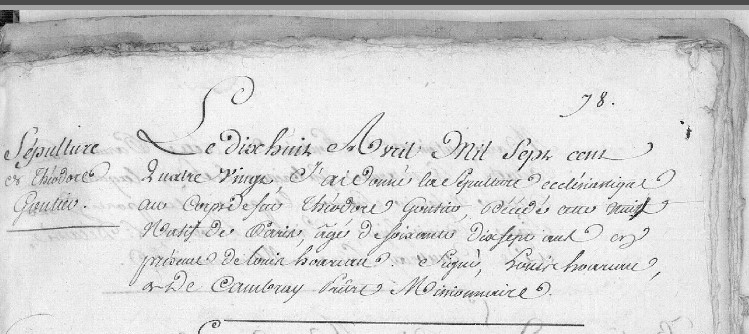 78.
Sépulture
de théodore
Gontier.
Le dixhuit Avril Mil Sept cent
Quatre vingt J'ai donné la Sépulture ecclésiastique
au corps de feu théodore Gontier, décédé cette nuit
Natif de Paris, agé de soixante dix sept ans en
présence de louis hoareau. Signé, Louis hoareau,
& De Cambray Prêtre Missionnaire.